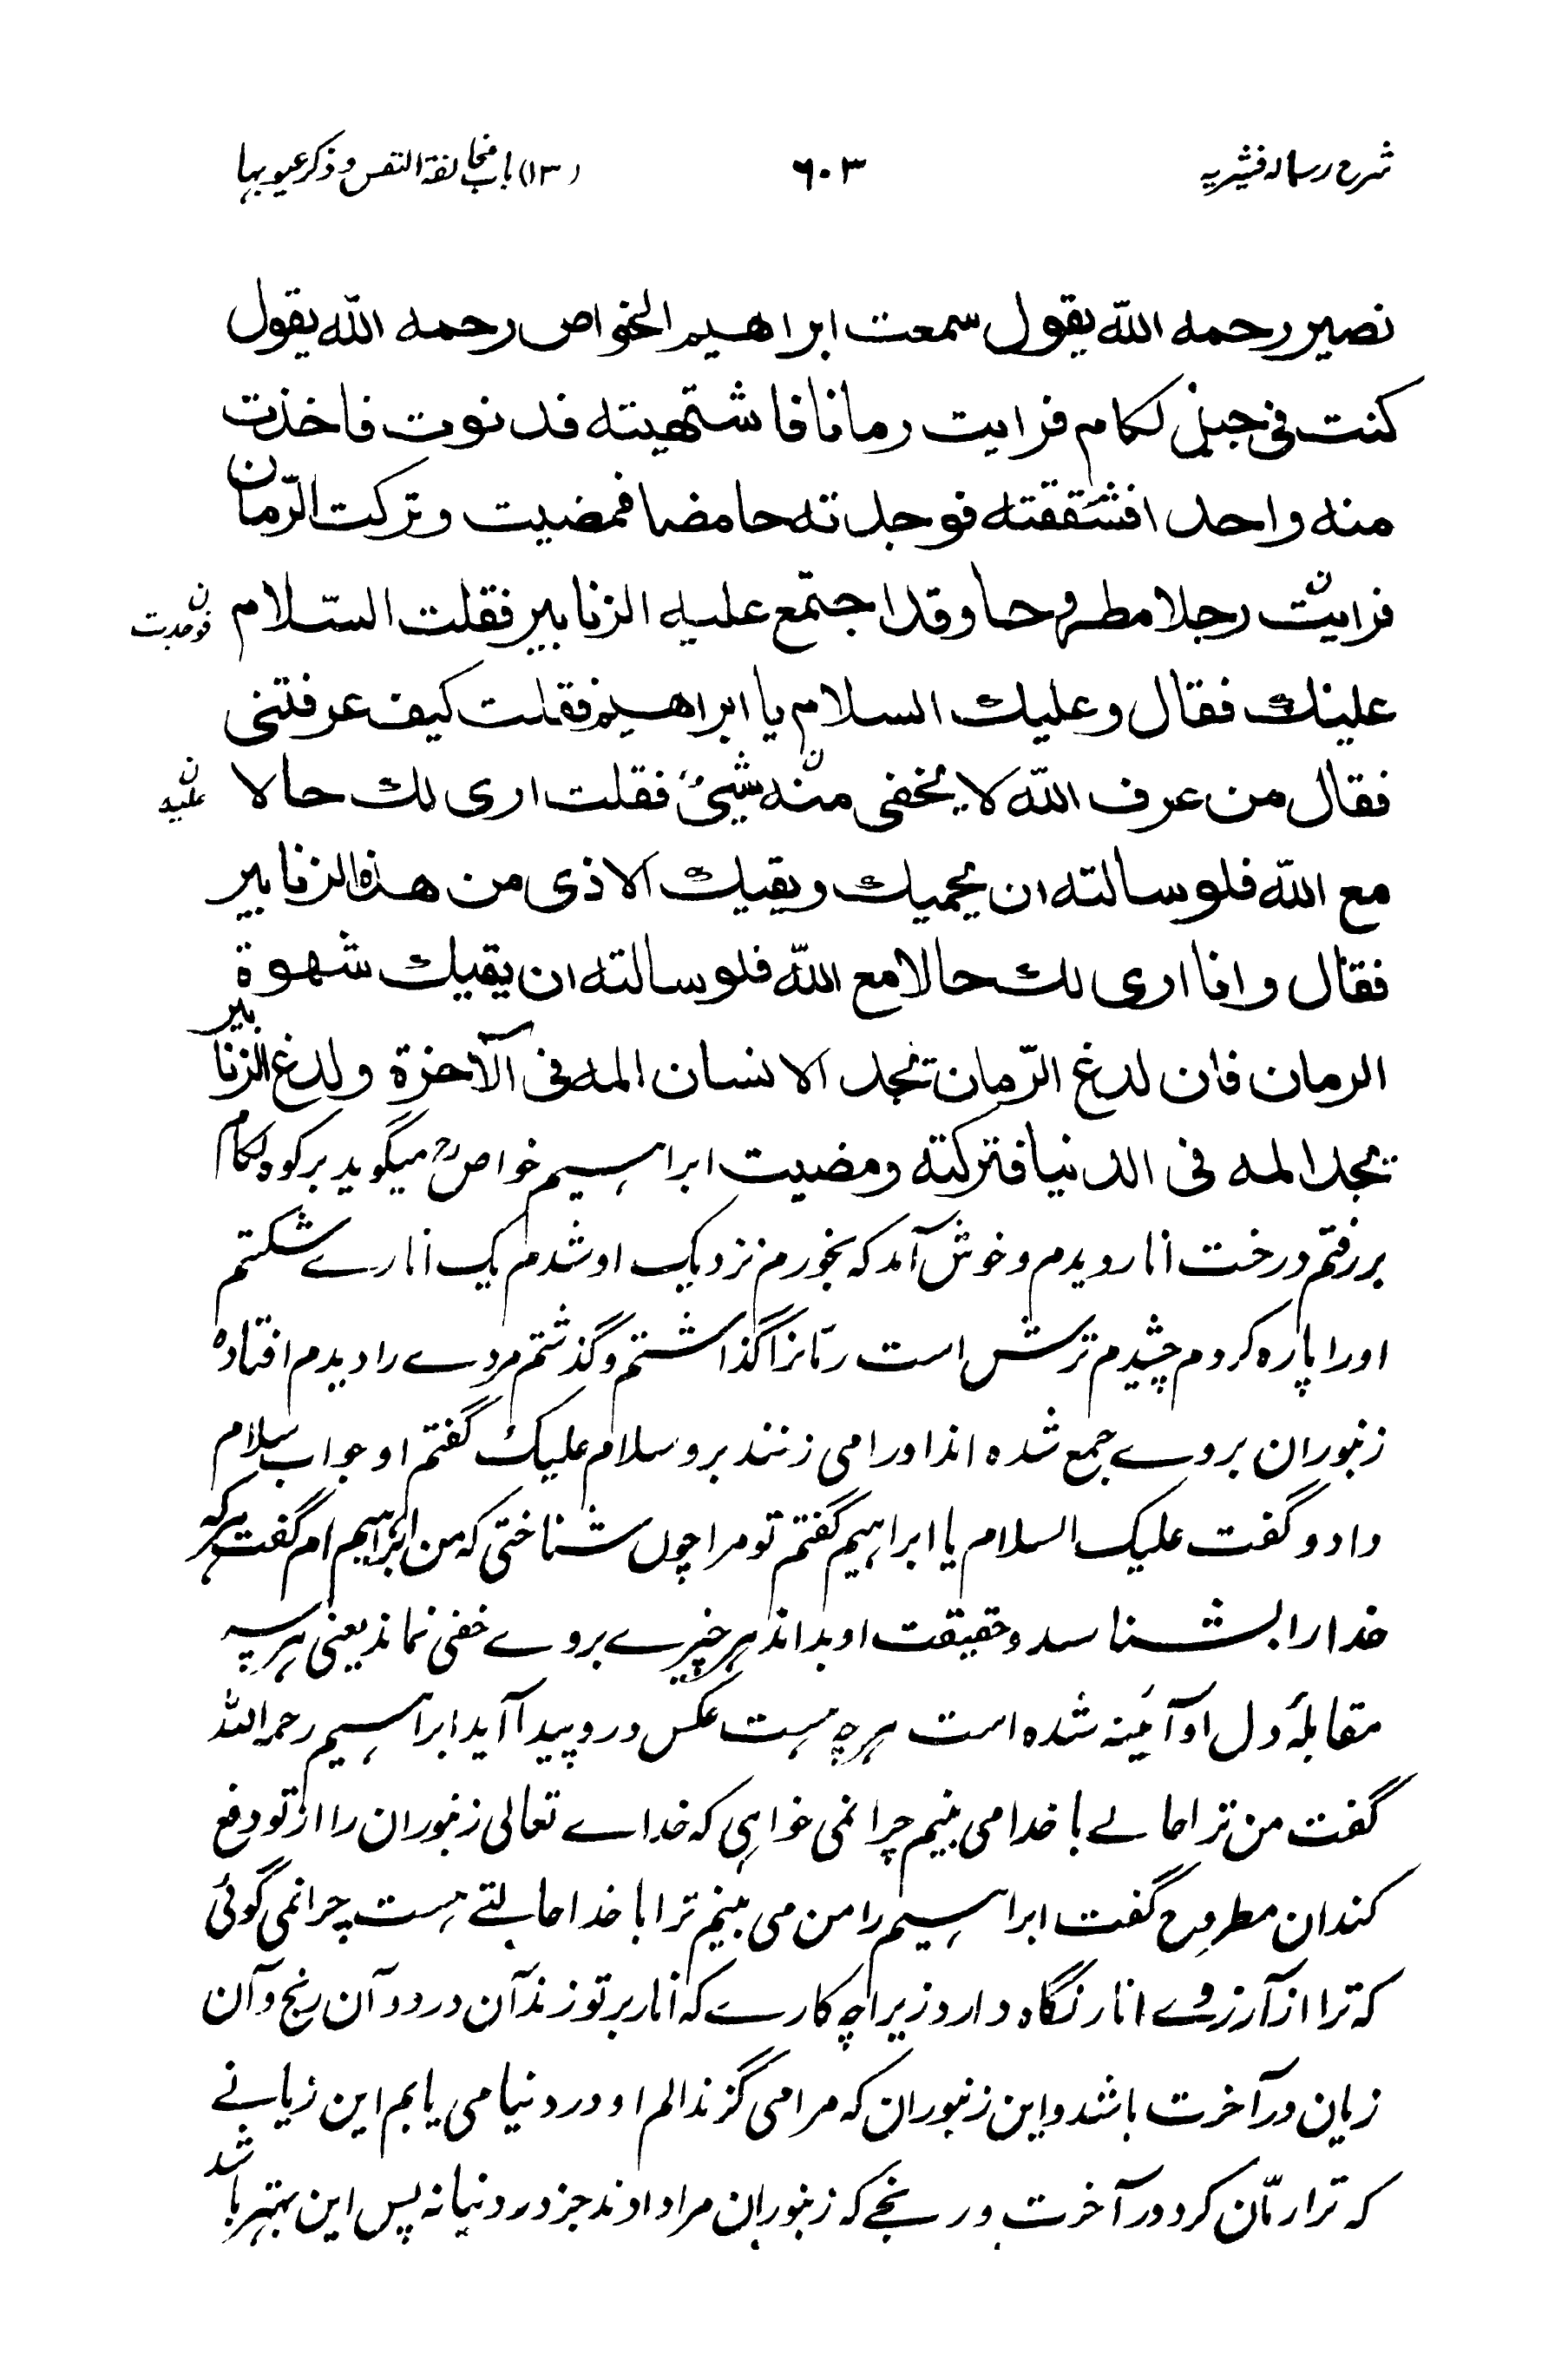 شرح رسالہ قشیریہ
۶۰۳
(۱۳) باب مخالفة النفس و ذکر عیوبها
نصیر رحمه اللّٰه یقول سمعت ابراهیم الخواص رحمه اللّٰه یقول
کنت فی جبل لکام فرایت رمانا فاشتهیته فدنوت فاخذت
منه واحدا فشققته فوجدته حامضا فمضیت وترکت الرّمان
فرایت ن رجلا مطروحا وقد اجتمع علیه الزنابیر فقلت السّلام
ن فوجدت
علیك فقال وعلیك السلام یا ابراهیم فقلت کیف عرفتنی
فقال من عرف اللّٰه لا یخفی منه ن شیئ فقلت اری لك حالا
ن علیه
مع اللّٰه فلو سالته ان یحمیك ویقیك الاذی من هذه الزنابیر
فقال وانا اری لك حالا مع اللّٰه فلو سالته ان یقیك شهوة
الرمان فان لدغ الرّمان تجد الانسان المه فی الآخرة ولدغ الزنابیر
تجد المه فی الدنیا فترکته ومضیت ابراہیم خواص رح میگوید بر کوہ لکام
بر رفتم درخت انار دیدم و خوش آمد کہ بخورم نزدیک او شدم یک انارے شکستم
اورا پارہ کردم چشیدم ترش است رمّانرا گذاشتم و گذشتم مردے را دیدم افتادہ
زنبوران بروے جمع شدہ اند اورا می زنند برو سلام علیک گفتم او جواب سلام
داد و گفت علیک السلام یا ابراہیم گفتم تو مرا چوں شناختی کہ من ابراہیم ام گفت ہر کہ
خدا را بشناسد و حقیقت او بداند ہر چیزے بروے خفی نماند یعنی ہر چہ
مقابلۂ دل او آئینہ شدہ است ہر چہ ہست عکس در و پیدا آید ابراہیم رحمہ اللّٰہ
گفت من ترا حالے با خدا می بینم چرا نمی خواہی کہ خداے تعالی زنبوران را از تو دفع
کند ان مطروح گفت ابراہیم را من می بینم ترا با خدا حالتے ہست چرا نمی گوئی
کہ ترا از آرزوے انار نگاہ دارد زیراچہ کارے کہ انار بر تو زند آن درد و آن رنج و آن
زیان در آخرت باشد و این زنبوران کہ مرا می گزند الم او در دنیا می یابم این زیانے
کہ ترا رمّان کرد در آخرت و رنجے کہ زنبوران مرا دادند جز در دنیا نہ پس این بہتر باشد